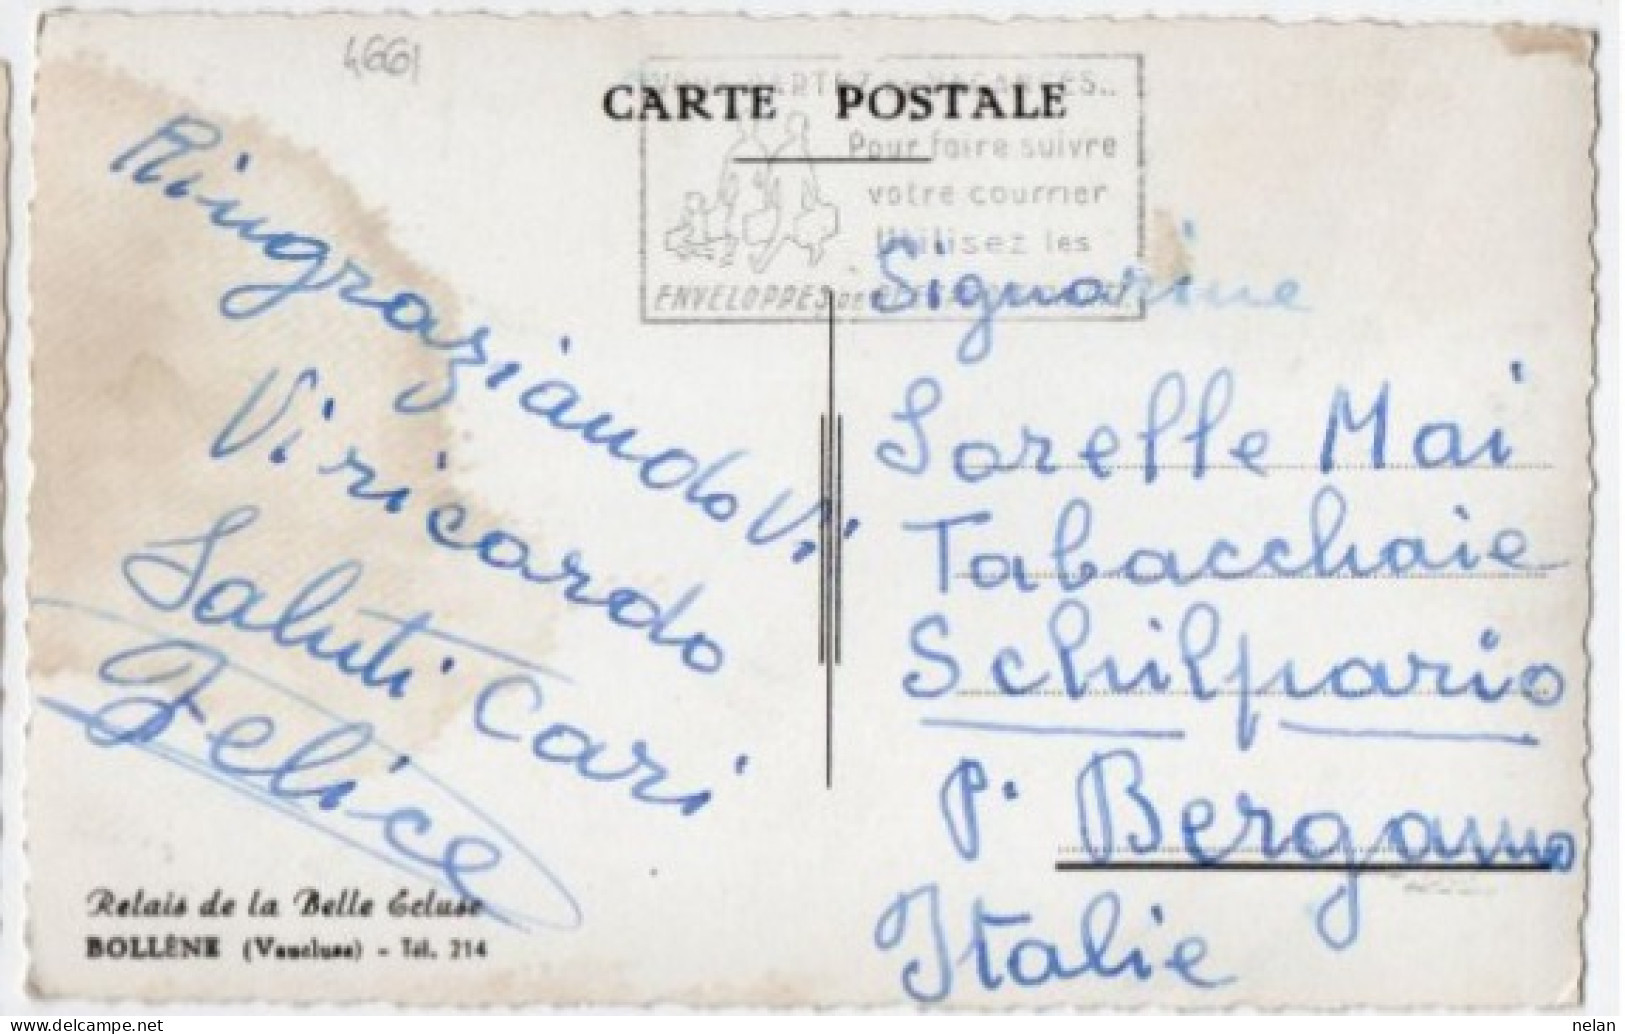 4661
CARTE POSTALE
VOUS PARTEZ EN VACANCES..
Pour faire suivre
votre courrier
Utilisez les
ENVELOPPES DE
Ringraziando Vi
Vi ricordo
Saluti Cari
Felice
Signorine
Sorelle Mai
Tabacchaie
Schilpario
P. Bergamo
Italie
Relais de la Belle Ecluse
BOLLÈNE (Vaucluse) - Tél. 214
nelan